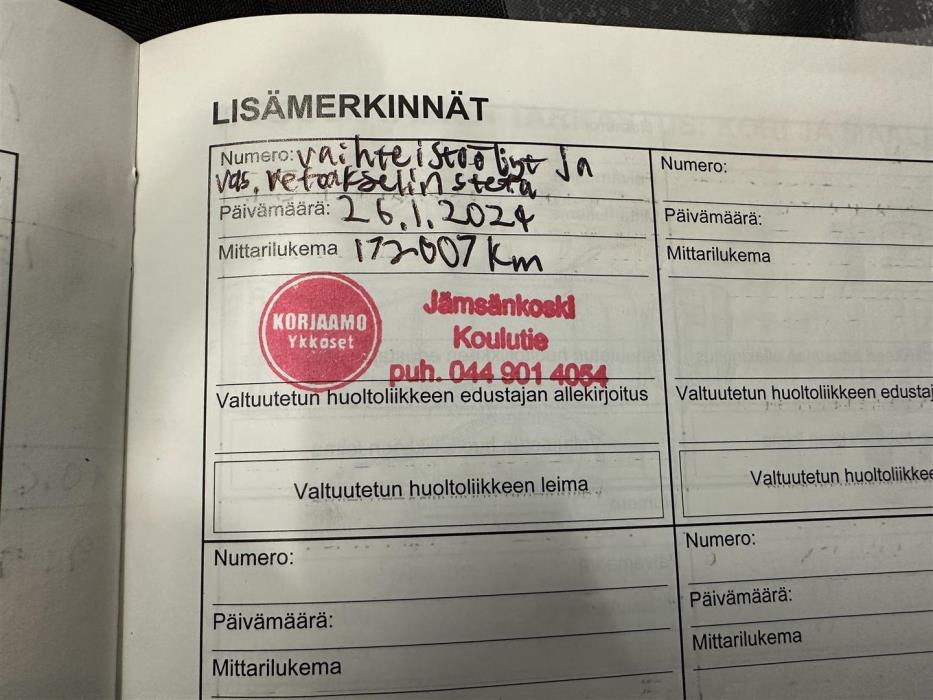 LISÄMERKINNÄT
Numero: vaihteistoöljyt ja
vas. vetoakselin stefa
Päivämäärä: 26.1.2024
Mittarilukema 172007 km
KORJAAMO
Ykköset
Jämsänkoski
Koulutie
puh. 044 901 4054
Valtuutetun huoltoliikkeen edustajan allekirjoitus
Valtuutetun huoltoliikkeen leima
Numero:
Päivämäärä:
Mittarilukema
Numero:
Päivämäärä:
Mittarilukema
Valtuutetun huoltoliikkeen edustaj
Valtuutetun huoltoliikkee
Numero:
Päivämäärä:
Mittarilukema